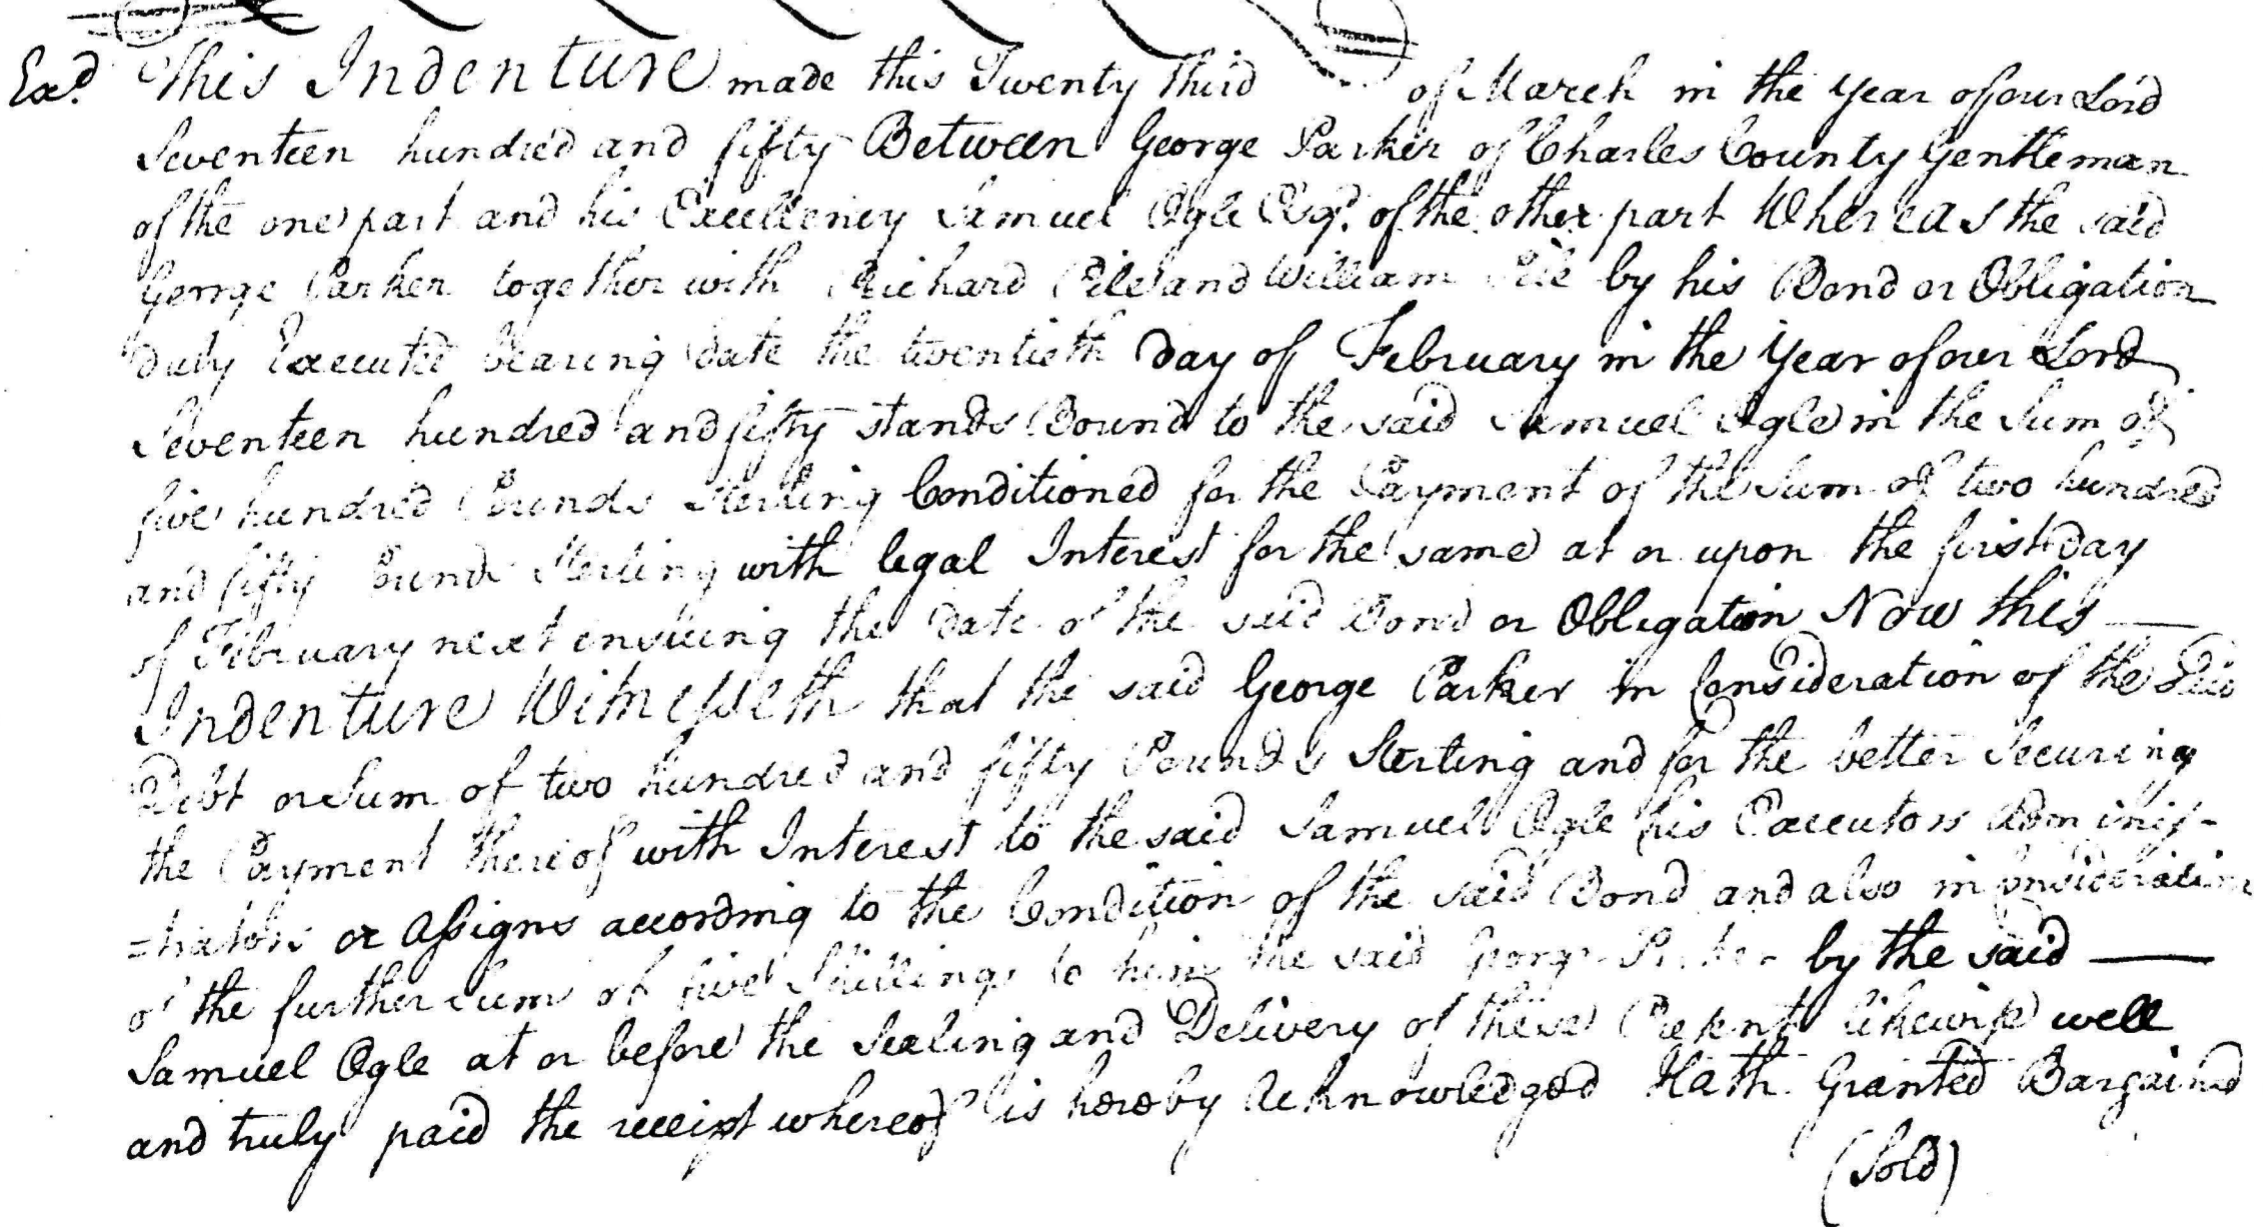 Exd. This Indenture made this Twenty third of March in the Year of our Lord
Seventeen hundred and fifty Between George Parker of Charles County Gentleman
of the one part and his Excellency Samuel Ogle Esqr. of the other part Whereas the said
George Parker together with Richard Pile and William Pile by his Bond or Obligation
duly Executed bearing date the twentieth day of February in the Year of our Lord
Seventeen hundred and fifty stands Bound to the said Samuel Ogle in the Sum of
five hundred Pounds Sterling Conditioned for the Payment of the Sum of two hundred
and fifty Pounds Sterling with legal Interest for the same at or upon the first day
of February next ensueing the date of the said Bond or Obligation Now this —
Indenture Witnesseth that the said George Parker in Consideration of the Said
Debt or Sum of two hundred and fifty Pounds Sterling and for the better Securing
the Payment thereof with Interest to the said Samuel Ogle his Executors Adminis-
=trators or Assigns according to the Condition of the said Bond and also in Consideration
of the further Sum of five Shillings to him the said George Parker by the said —
Samuel Ogle at or before the Sealing and Delivery of these Present likewise well
and truly paid the receipt whereof is hereby Acknowledged Hath Granted Bargained
(Sold)